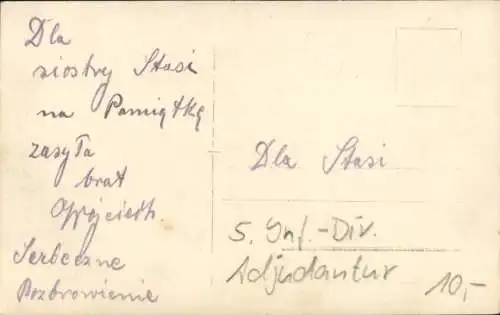 Dla
siostry Stasi
na Pamiątkę
zasyła
brat
Wojciech.
Serbeczne
Pozbrowienie
Dla Stasi
5. Inf.-Div.
Adjudantur
10,-